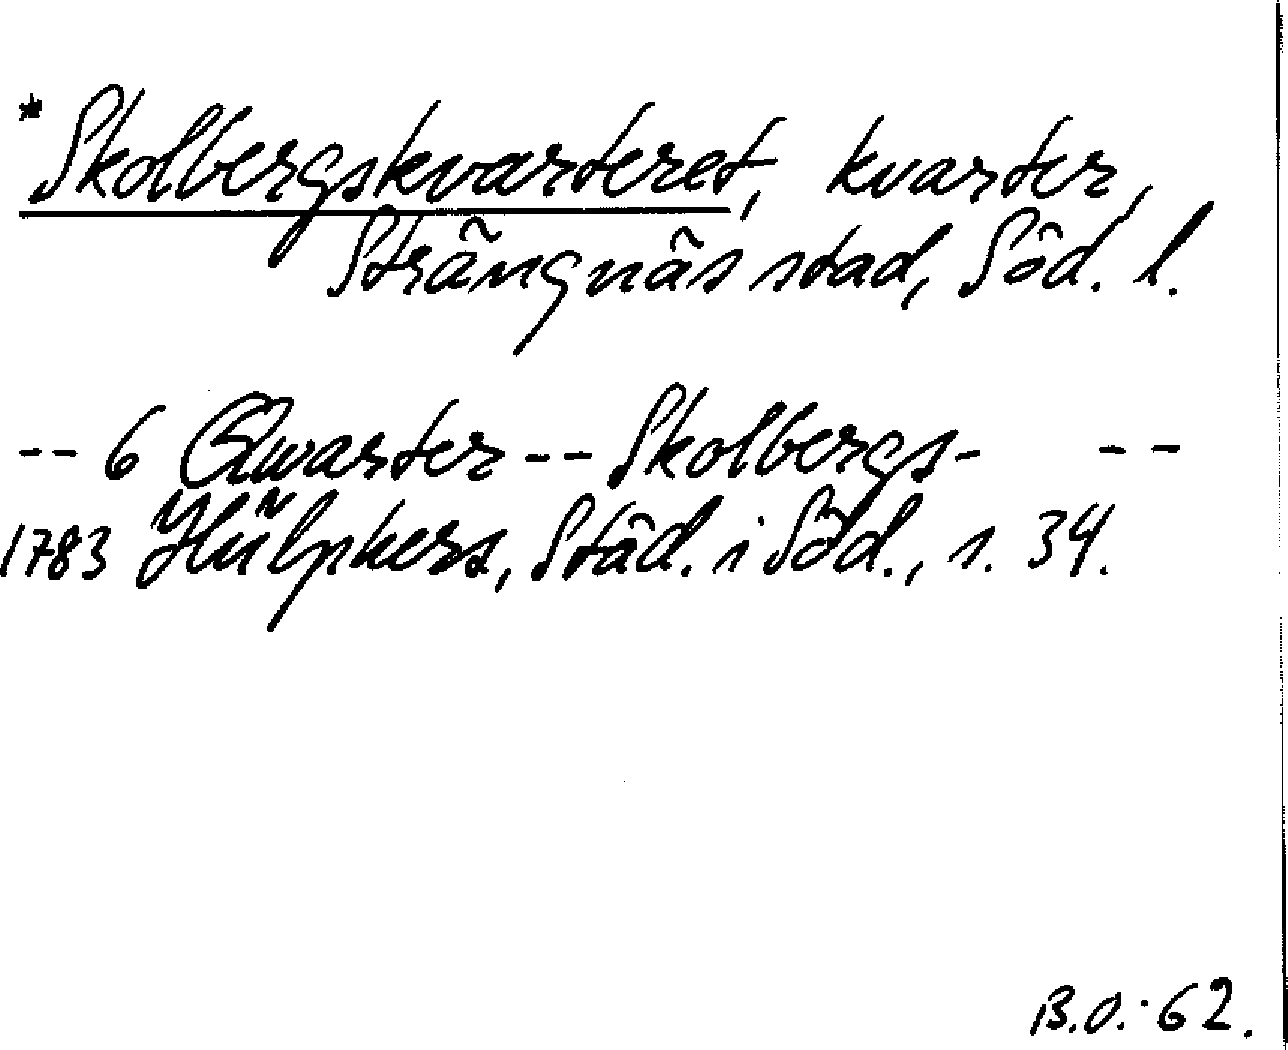 *Skolbergskvarteret, kvarter,
Strängnäs stad, Söd. l.
-- 6 Qwarter -- Skolbergs- --
1783 Hülphers, Städ. i Söd., s. 34.
B.O. 62.